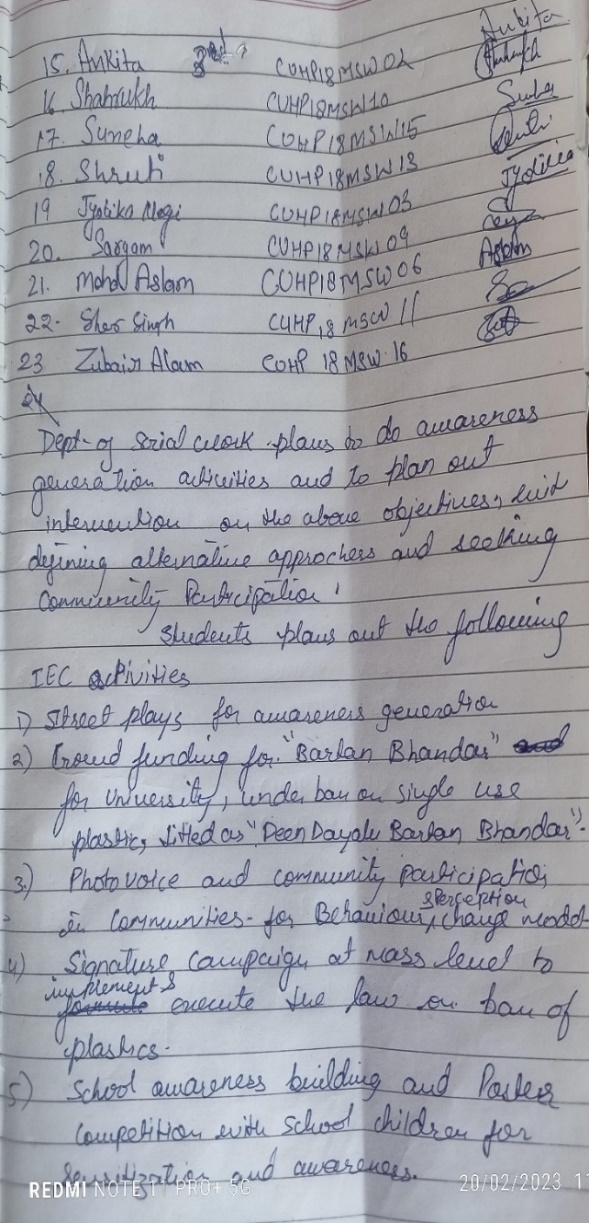 Ankita
15. Ankita 3rd CUHP18MSW02
16. Shahrukh CUHP18MSW10
17. Suneha CUHP18MSW15
18. Shruti CUHP18MSW13
19 Jyotika Negi CUHP18MSW03
20. Sargam CUHP18MSW09
21. Mohd Aslam CUHP18MSW06 Aslam
22. Sher Singh CUHP18MSW11
23 Zubair Alam CUHP 18 MSW 16
24
Dept- of Social work plans to do awareness
generation activities and to plan out
intervention on the above objectives, with
defining alternative approches and seeking
Community Participation.
Students plans out the following
IEC activities
1) Street plays for awareness generation
2) Croud funding for "Bartan Bhandar"
for University, under ban on single use
plastic, titled as "Deen Dayalu Bartan Bhandar".
3) Photovoice and community participation
in Communities for Behaviour, & Perception change model
4) Signature Campaign at mass level to
implement & execute the law on ban of
plastics.
5) School awareness building and Poster
Competition with School children for
Sensitization and awareness.
REDMI NOTE 1 PRO+ 5G 20/02/2023 1